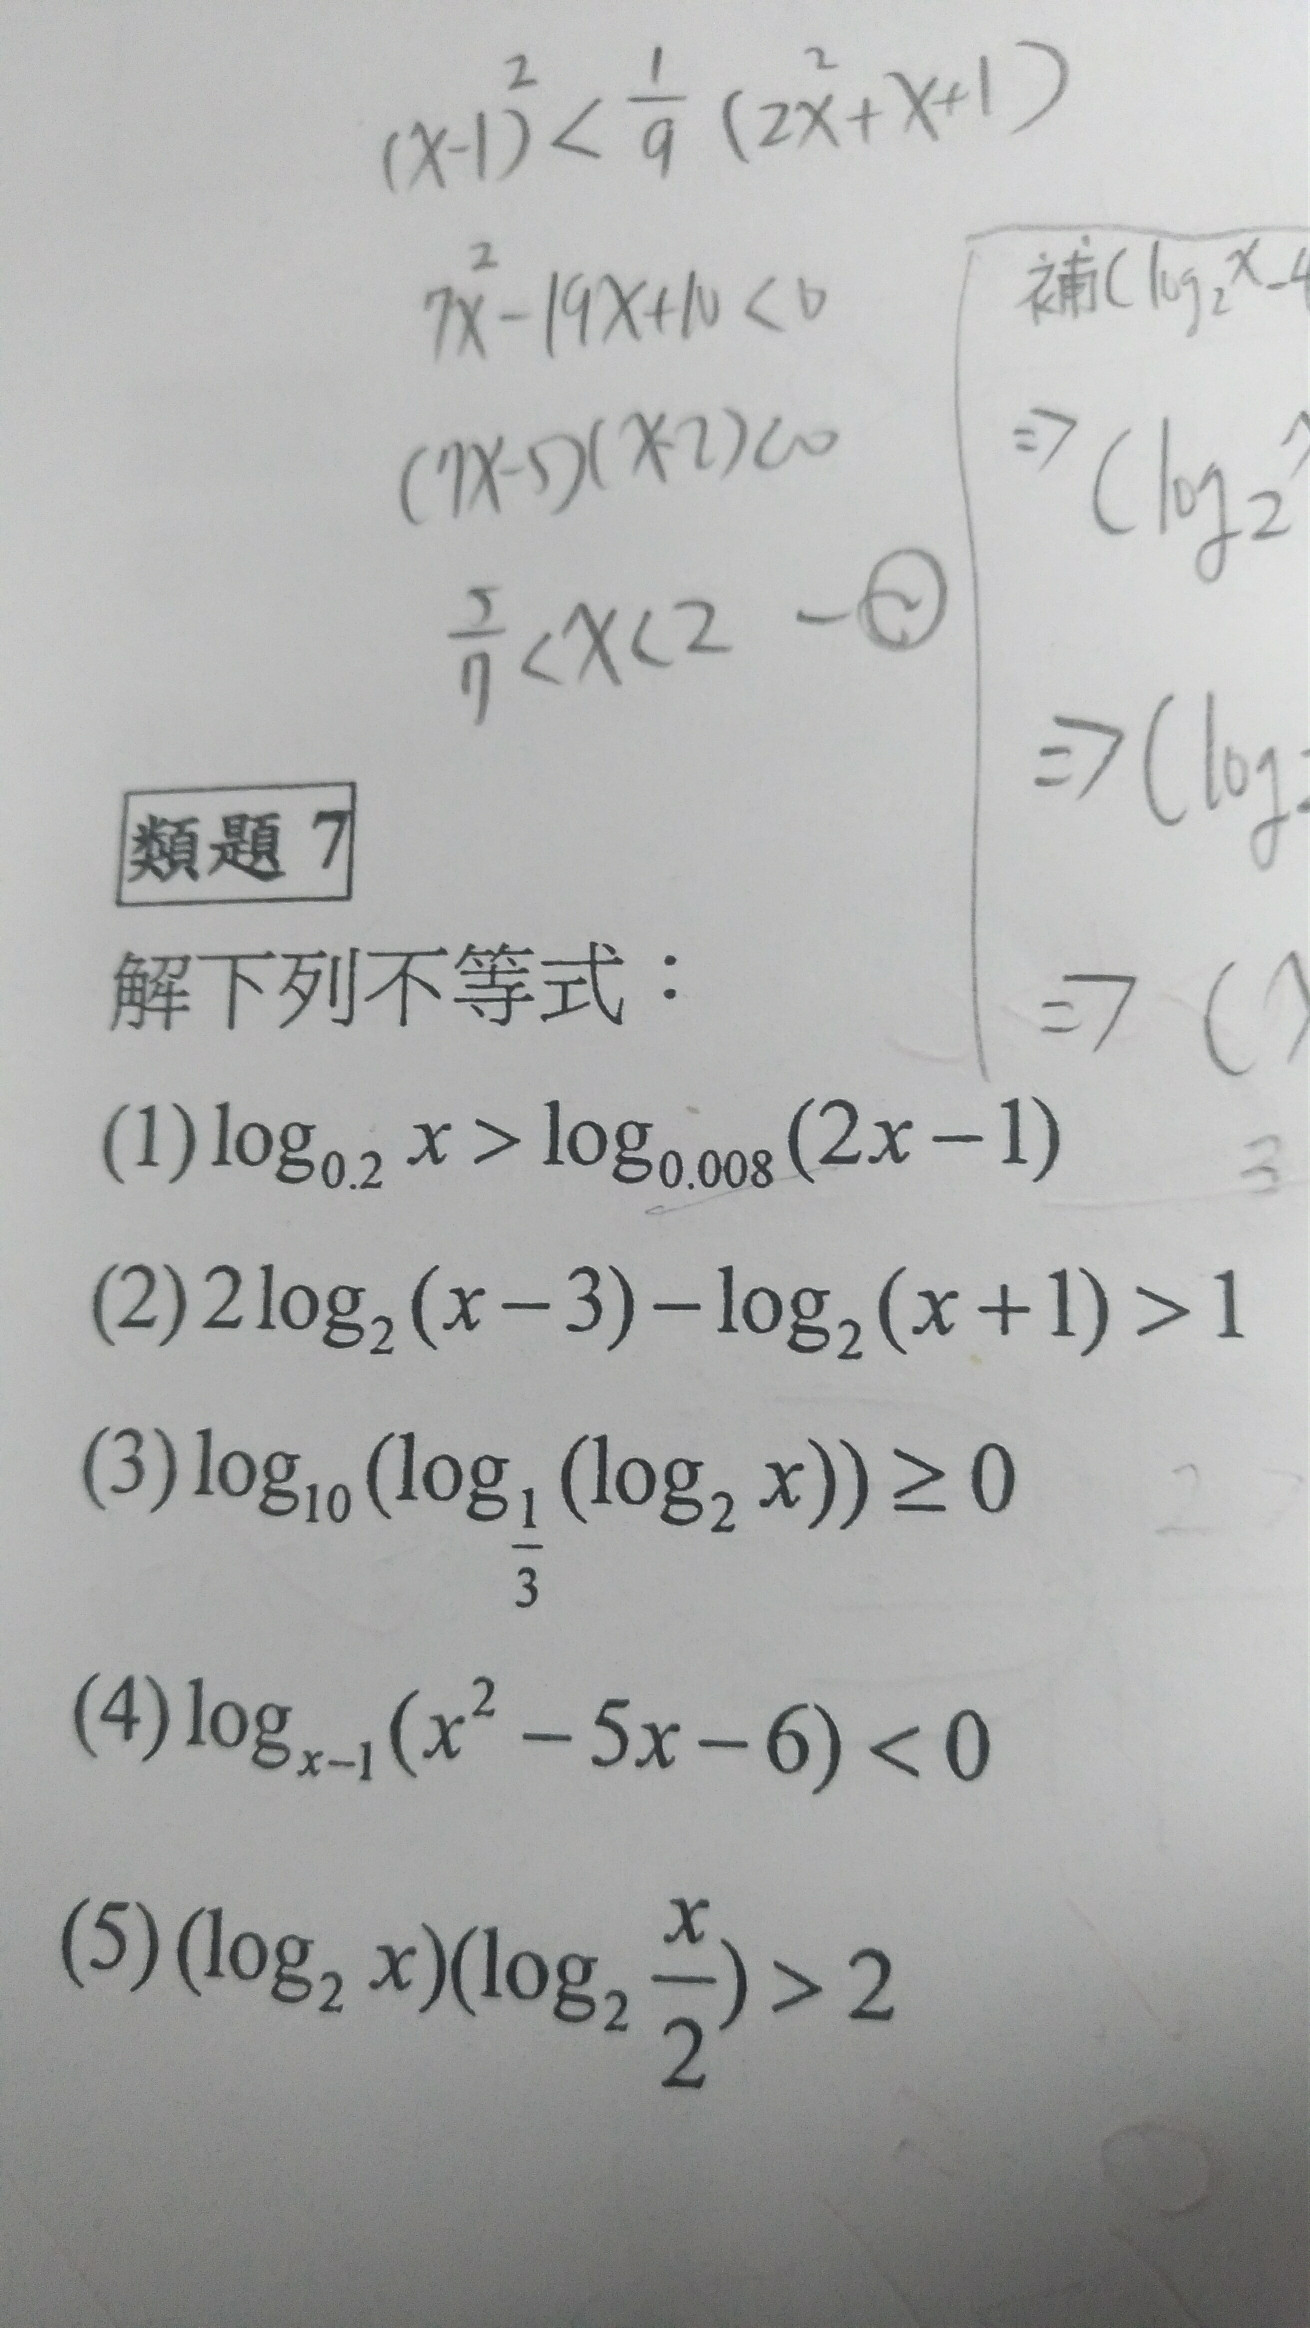 (x-1)² < 1/9 (2x²+x+1)
7x²-19x+10<0
(7x-5)(x-2)<0
5/7<x<2 -②
補(log₂x-4
⇒ (log₂x
⇒(log₂
⇒ (x
3
類題 7
解下列不等式：
(1) log₀.₂ x > log₀.₀₀₈ (2x-1)
(2) 2log₂(x-3)-log₂(x+1)>1
(3) log₁₀(log_{1/3}(log₂ x)) ≥ 0
(4) log_{x-1}(x²-5x-6)<0
(5) (log₂ x)(log₂ x/2)>2